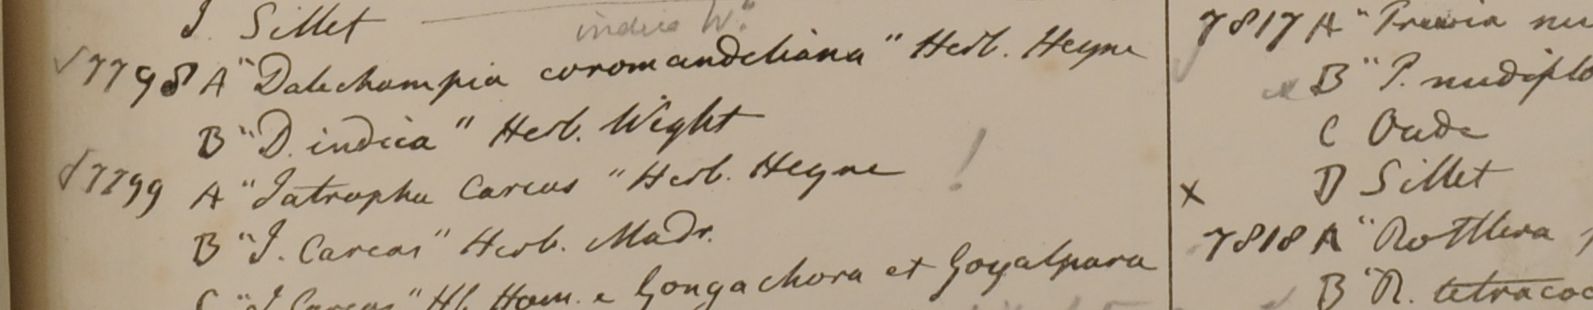 I. Sillet
indica W.
√7798 A "Dalechampia coromandeliana" Herb. Heyne
B "D. indica" Herb. Wight
√7799 A "Jatropha Curcas" Herb. Heyne !
B "J. Curcas" Herb. Madr.
C "J. Curcas" Hb. Ham. e Gongachora et Goyalpara
7817 A "Trewia nu
B "T. nudiflo
C Oude
x D Sillet
7818 A "Rottlera
B "R. tetracoc